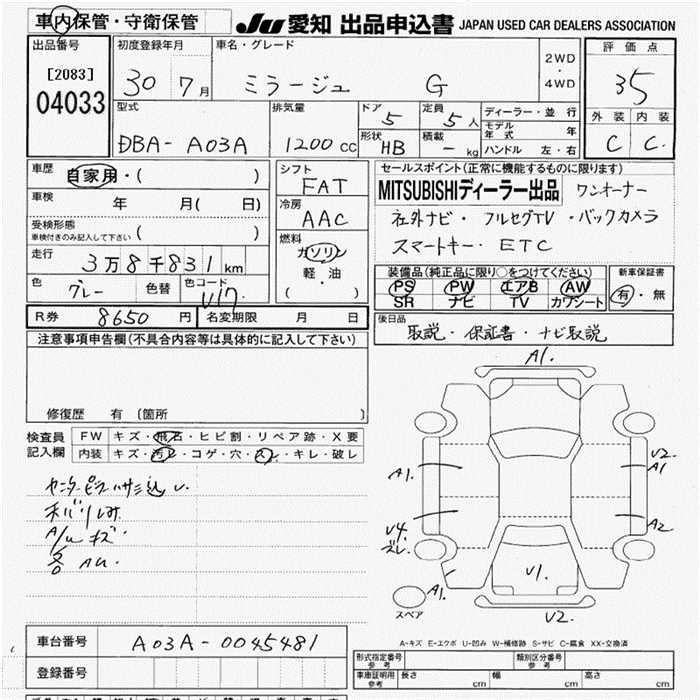 車内保管・守衛保管
JU 愛知 出品申込書 JAPAN USED CAR DEALERS ASSOCIATION
出品番号 初度登録年月 車名・グレード 評価点
[2083] 30 7月 ミラージュ G 2WD・4WD 35
04033
型式 排気量 ドア 5 定員 5人 ディーラー・並行 外装 内装
DBA-A03A 1200cc 形状 HB 積載 - kg モデル年式 年 C C
ハンドル 左・右
車歴 自家用・( ) シフト FAT セールスポイント(正常に機能するものに限ります)
車検 年 月( 日) 冷房 AAC MITSUBISHIディーラー出品 ワンオーナー
受検形態 車検付きのみ記入して下さい ( ) 社外ナビ・フルセグTV・バックカメラ
走行 3万8千831km 燃料 ガソリン スマートキー・ETC
軽・油
( )
色 グレー 色替 色コード U17
装備品(純正品に限り○をつけてください) 新車保証書
PS PW エアB AW 有・無
SR ナビ TV カワシート
R券 8650円 名変期限 月 日
後日品
取説・保証書・ナビ取説
注意事項申告欄(不具合内容等は具体的に記入して下さい)
修復歴 有 〔箇所 〕
検査員記入欄 FW キズ・飛石・ヒビ割・リペア跡・X要
内装 キズ・汚レ・コゲ・穴・スレ・キレ・破レ
A/W キズ
各 AU.
A1.
A1 U2.
A1
U4 ズレ A2
U1.
A1 U2.
スペア
A-キズ E-エクボ U-凹み W-補修跡 S-サビ C-腐食 XX-交換済
車台番号 A03A-0045481
登録番号
形式指定番号 参考 類別区分番号 参考
車庫証明用 参考 長さ cm 幅 cm 高さ cm